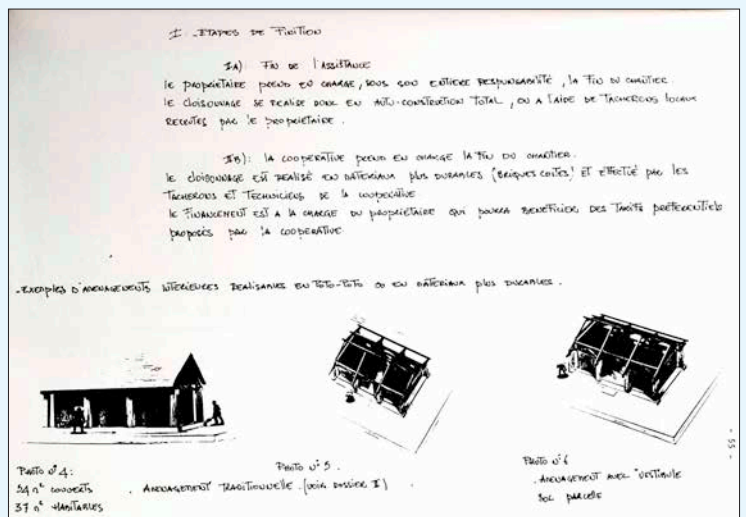 I - ETAPES DE FINITION
IA) : FIN DE L'ASSISTANCE
LE PROPRIETAIRE PREND EN CHARGE, SOUS SON ENTIERE RESPONSABILITÉ, LA FIN DU CHANTIER.
LE CLOISONNAGE SE REALISE DONC EN AUTO-CONSTRUCTION TOTAL, OU A L'AIDE DE TACHERONS LOCAUX
RECRUTÉS PAR LE PROPRIETAIRE.
IB) : LA COOPERATIVE PREND EN CHARGE LA FIN DU CHANTIER.
LE CLOISONNAGE EST REALISÉ EN MATERIAUX PLUS DURABLES (BRIQUES CUITES) ET EFFECTUÉ PAR LES
TACHERONS ET TECHNICIENS DE LA COOPERATIVE
LE FINANCEMENT EST A LA CHARGE DU PROPRIETAIRE QUI POURRA BENEFICIER DES TARIFS PRÉFERENTIELS
PROPOSÉS PAR LA COOPERATIVE
- EXEMPLES D'AMENAGEMENTS INTERIEURES REALISABLES EN POTO-POTO OU EN MATERIAUX PLUS DURABLES.
PHOTO N°4 :
24 m² COUVERTS
37 m² HABITABLES
PHOTO N°5.
. AMENAGEMENT TRADITIONNELLE. (VOIR DOSSIER I)
PHOTO N°6
. AMENAGEMENT AVEC "VESTIBULE
SOL PARCELLE
- 55 -